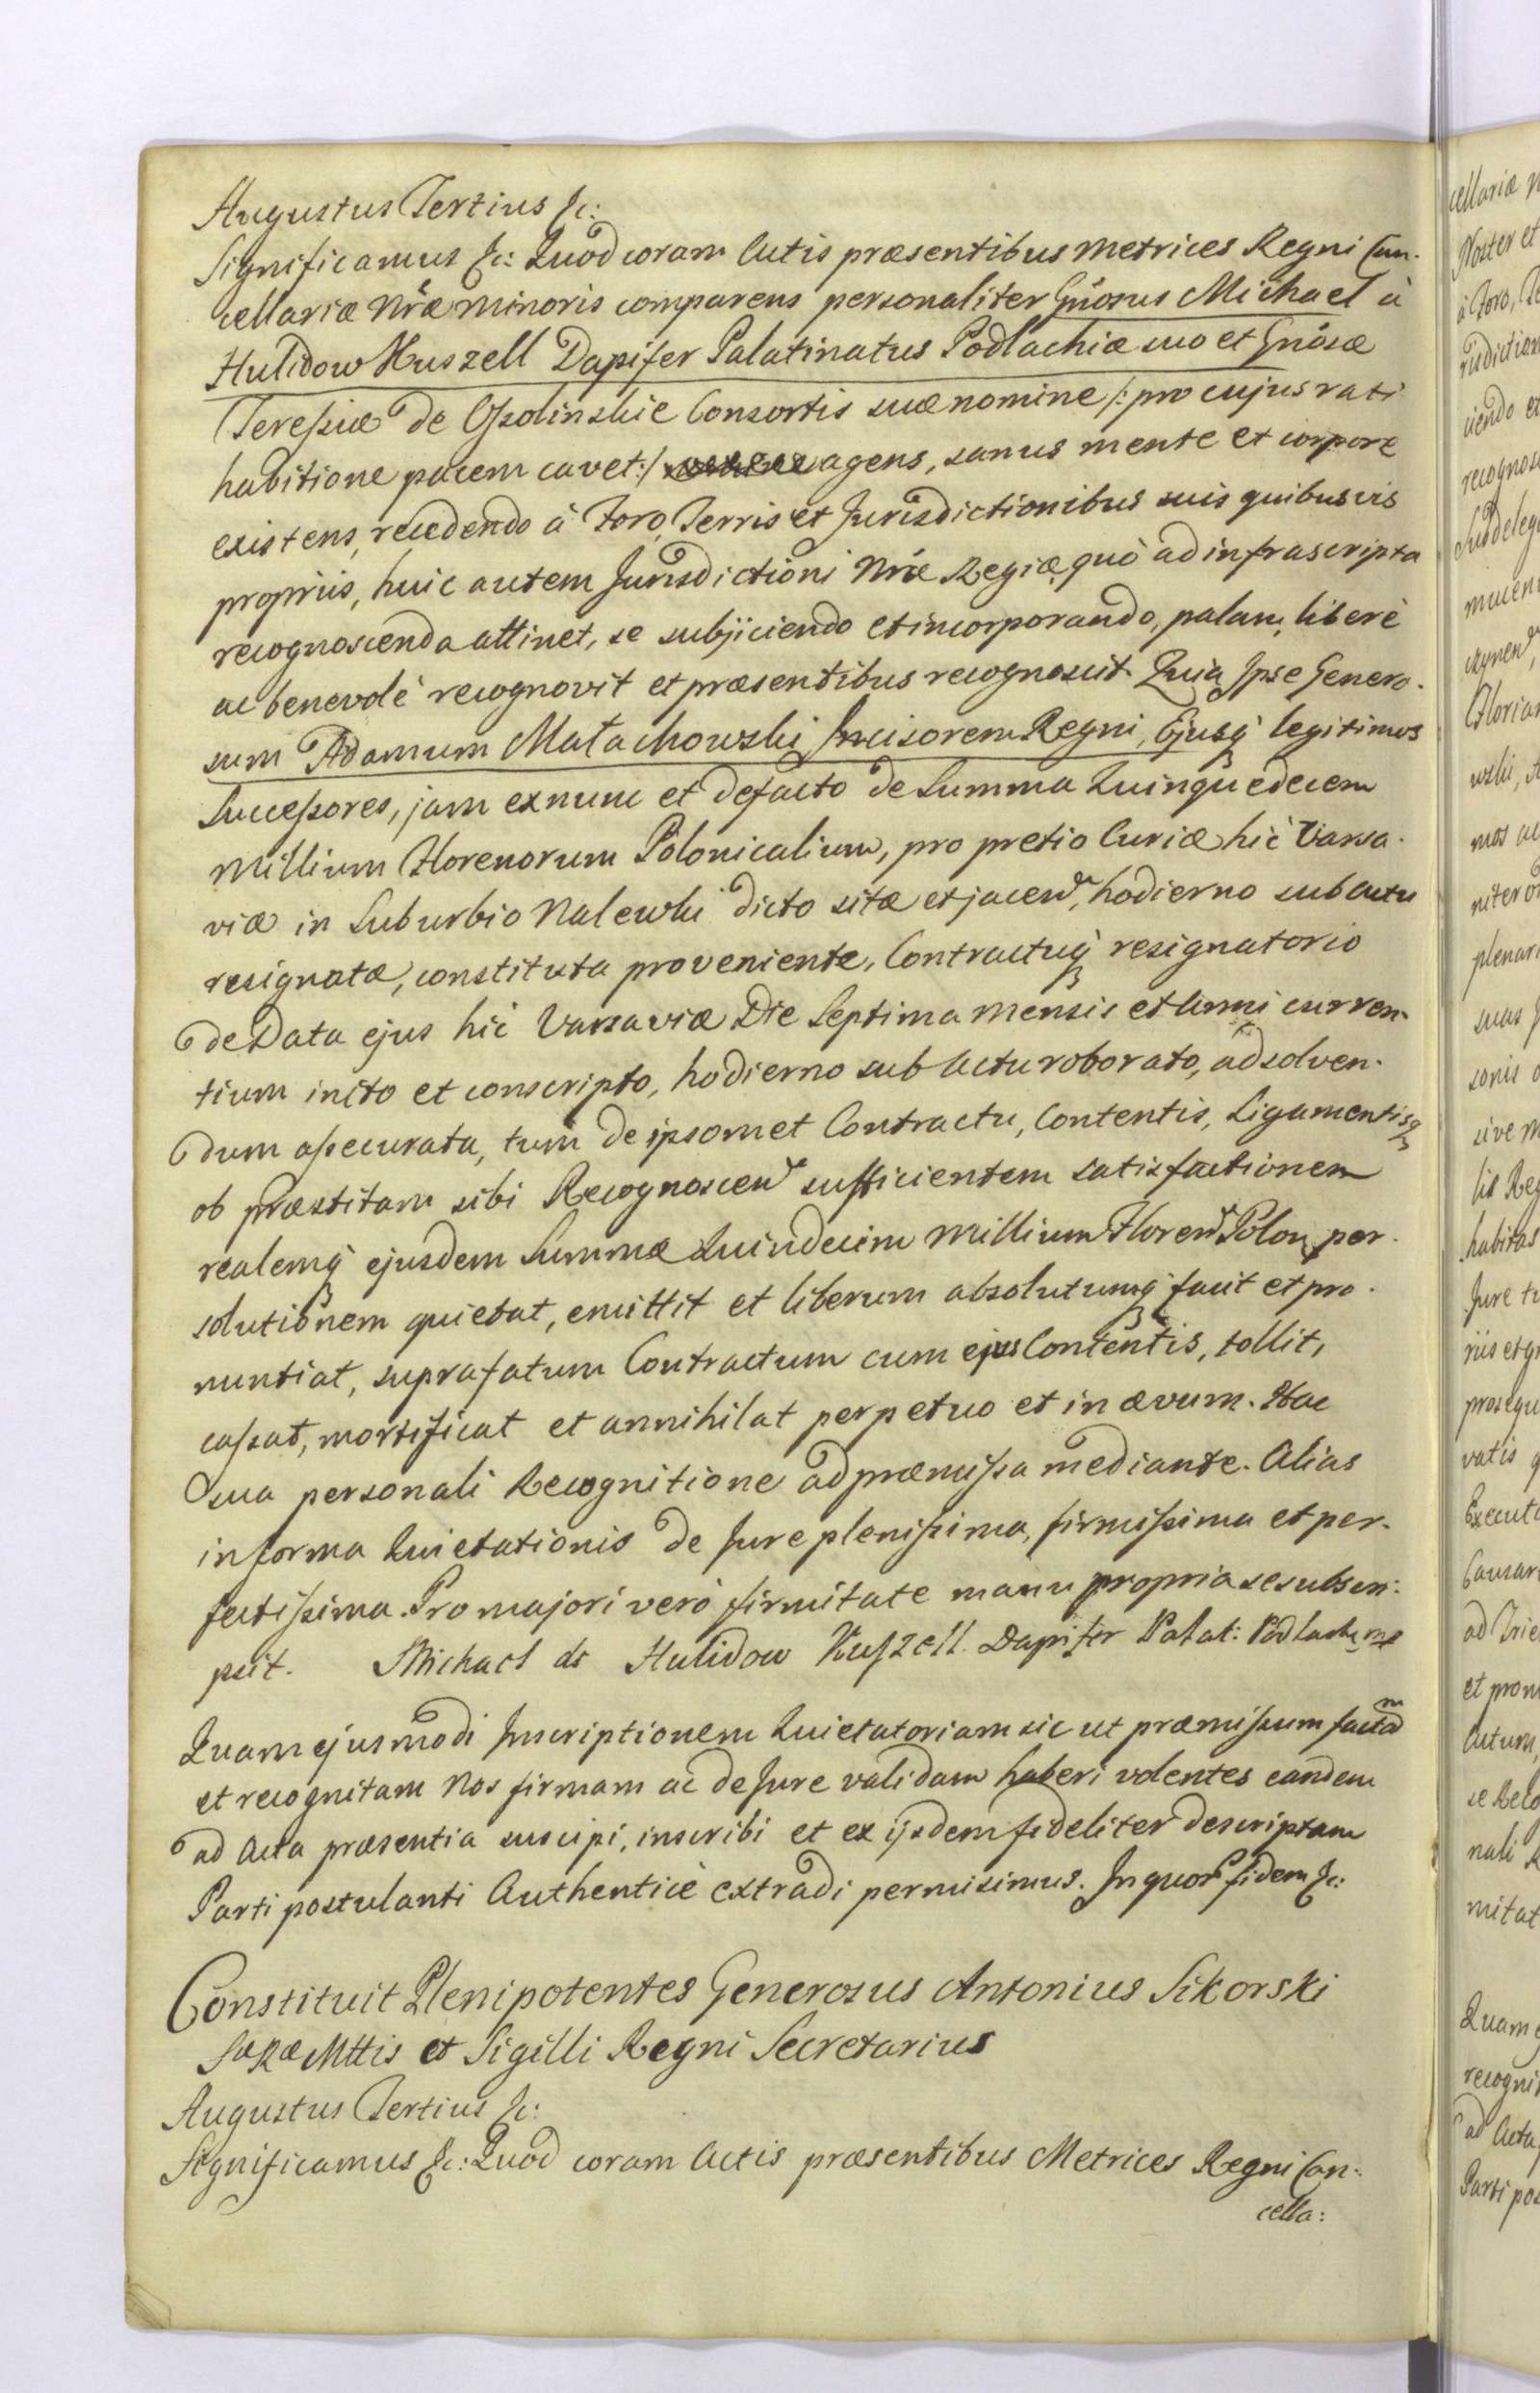 Augustus Tertius &c:
Significamus &c: Quod coram Actis præsentibus Metrices Regni Can-
cellariæ Nræ Minoris comparens personaliter Gnosus Michael à
Hulidow Kuszell Dapifer Palatinatus Podlachiæ suo et Gnosæ
Teressiæ de Ossolinskie Consortis suæ nomine /: pro cujus rati
habitione pacem cavet :/ agens, sanus mente et corpore
existens, recedendo à Foro, Terris et Jurisdictionibus suis quibusvis
propriis, huic autem Jurisdictioni Nræ Regiæ, quò ad infrascripta
recognoscenda attinet, se subjiciendo et incorporando, palam, liberè
ac benevolè recognovit et præsentibus recognoscit. Quia Ipse Genero-
sum Adamum Małachowski Incisorem Regni, Ejusq legitimos
Successores, jam ex nunc et defacto de Summa Quinquedecem
Millium Florenorum Polonicalium, pro pretio Curiæ hic Varsa-
viæ in Suburbio Nalewki dicto sitæ et jacen, hodierno sub Actu
resignatæ, constituta proveniente, Contractuq resignatorio
de Data ejus hic Varsaviæ Die Septima Mensis et Anni curren-
tium inito et conscripto, hodierno sub Actu roborato, ad solven-
dum assecurata, tum de ipsomet Contractu, Contentis, Ligamentisq
ob præstitam sibi Recognoscen sufficientem satisfactionem
realemq ejusdem Summæ Quindecim Millium Floren Polon per-
solutionem quietat, emittit et liberum absolutumq facit et pro-
nuntiat, suprafatum Contractum cum ejus Contentis, tollit,
cassat, mortificat et annihilat perpetuo et in ævum. Hac
sua personali Recognitione ad præmissa mediante. Alias
in forma Quietationis de Jure plenissima, firmissima et per-
fectissima. Pro majori verò firmitate manu propria se subscri-
psit. Michael de Hulidow Kuszell Dapifer Palat: Podlach mp
Quam ejusmodi Inscriptionem Quietatoriam sic ut præmissum factam
et recognitam Nos firmam ac de Jure validam haberi volentes eandem
ad Acta præsentia suscipi, inscribi et ex ijsdem fideliter descriptam
Parti postulanti Authenticè extradi permisimus. In quor fidem &c:
Constituit Plenipotentes Generosus Antonius Sikorski
SæRæ Mttis et Sigilli Regni Secretarius
Augustus Tertius &c:
Significamus &c: Quod coram Actis præsentibus Metrices Regni Can-
cella: